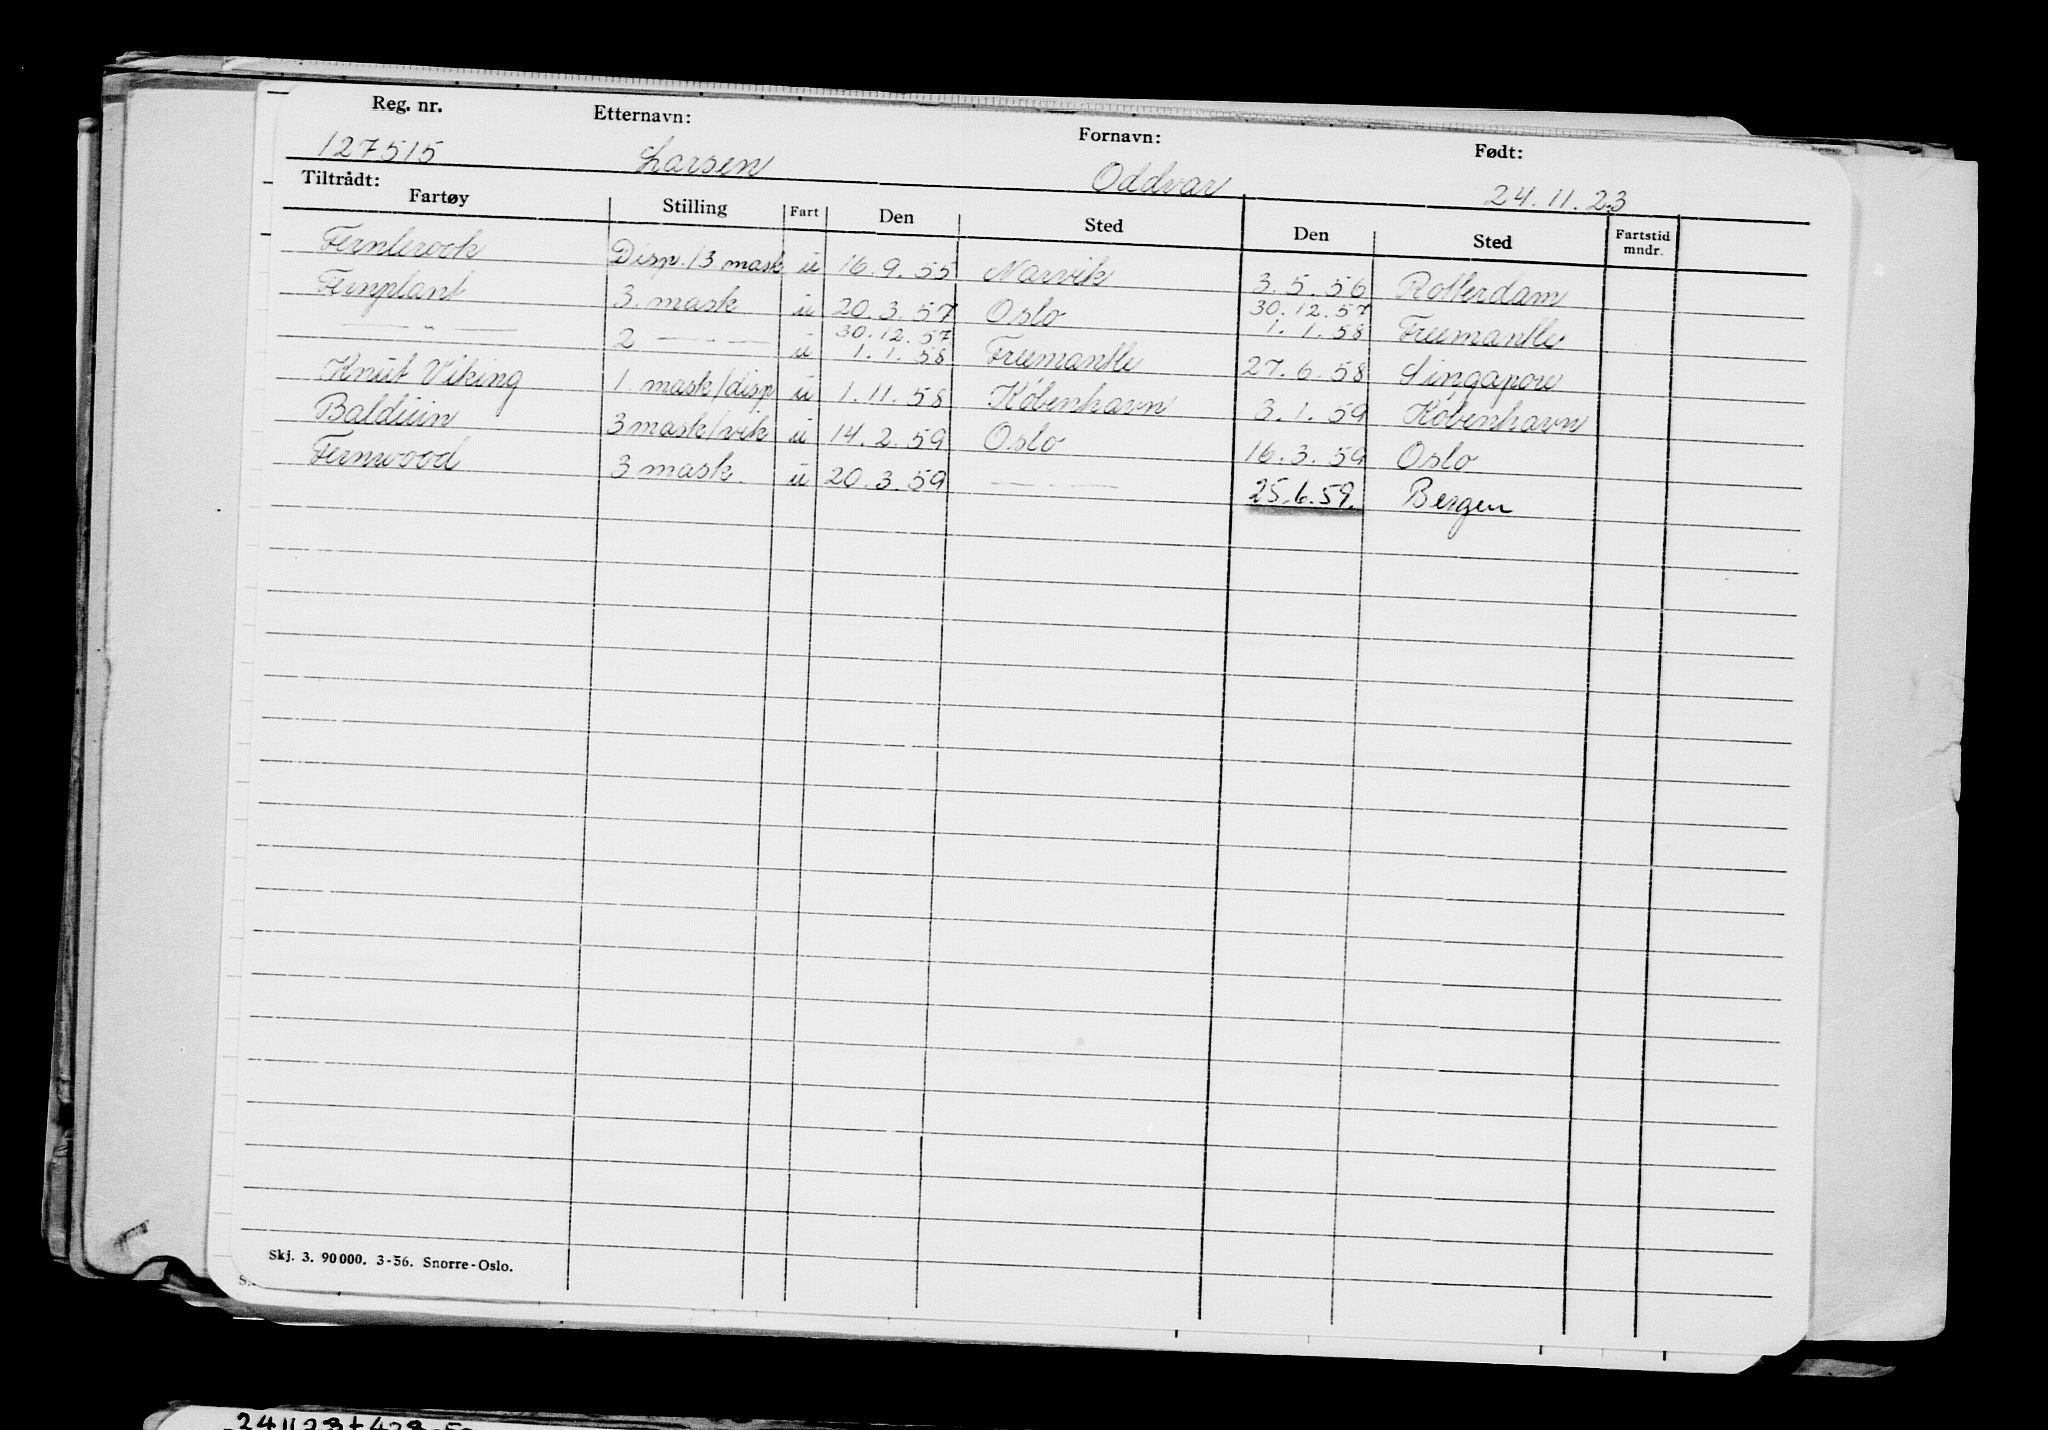 Reg. nr. Etternavn: Fornavn: Født:
127515 Larsen Oddvar 24.11.23
Tiltrådt:
Fartøy Stilling Fart Den Sted Den Sted Fartstid mndr.
Fernbrook Disp./3 mask u 16.9.55 Narvik 3.5.56 Rotterdam
Fernplant 3. mask u 20.3.57 Oslo 30.12.57 1.1.58 Freemantle
— " — 2 — " — u 30.12.57 1.1.58 Freemantle 27.6.58 Singapore
Knut Viking 1. mask/disp u 1.11.58 København 3.1.59 København
Balduin 3 mask/vik u 14.2.59 Oslo 16.3.59 Oslo
Fernwood 3 mask. u 20.3.59 — " — 25.6.59. Bergen
Skj. 3. 90000. 3-56. Snorre-Oslo.